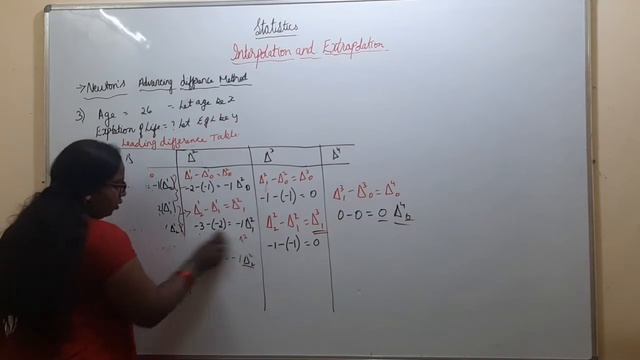 Statistics
Interpolation and Extrapolation
→ Newton's Advancing difference Method
3) Age = 26 - Let age be x
Exptation of Life = ? Let E of L be y
Leading difference Table
Δ² Δ³ Δ⁴
Δ¹₁ - Δ¹₀ = Δ²₀
-2-(-1) = -1 Δ²₀
Δ¹₂ - Δ¹₁ = Δ²₁
-3-(-2) = -1 Δ²₁
-1 Δ²₂
Δ²₁ - Δ²₀ = Δ³₀
-1-(-1) = 0
Δ²₂ - Δ²₁ = Δ³₁
-1-(-1) = 0
Δ³₁ - Δ³₀ = Δ⁴₀
0-0 = 0 Δ⁴₀